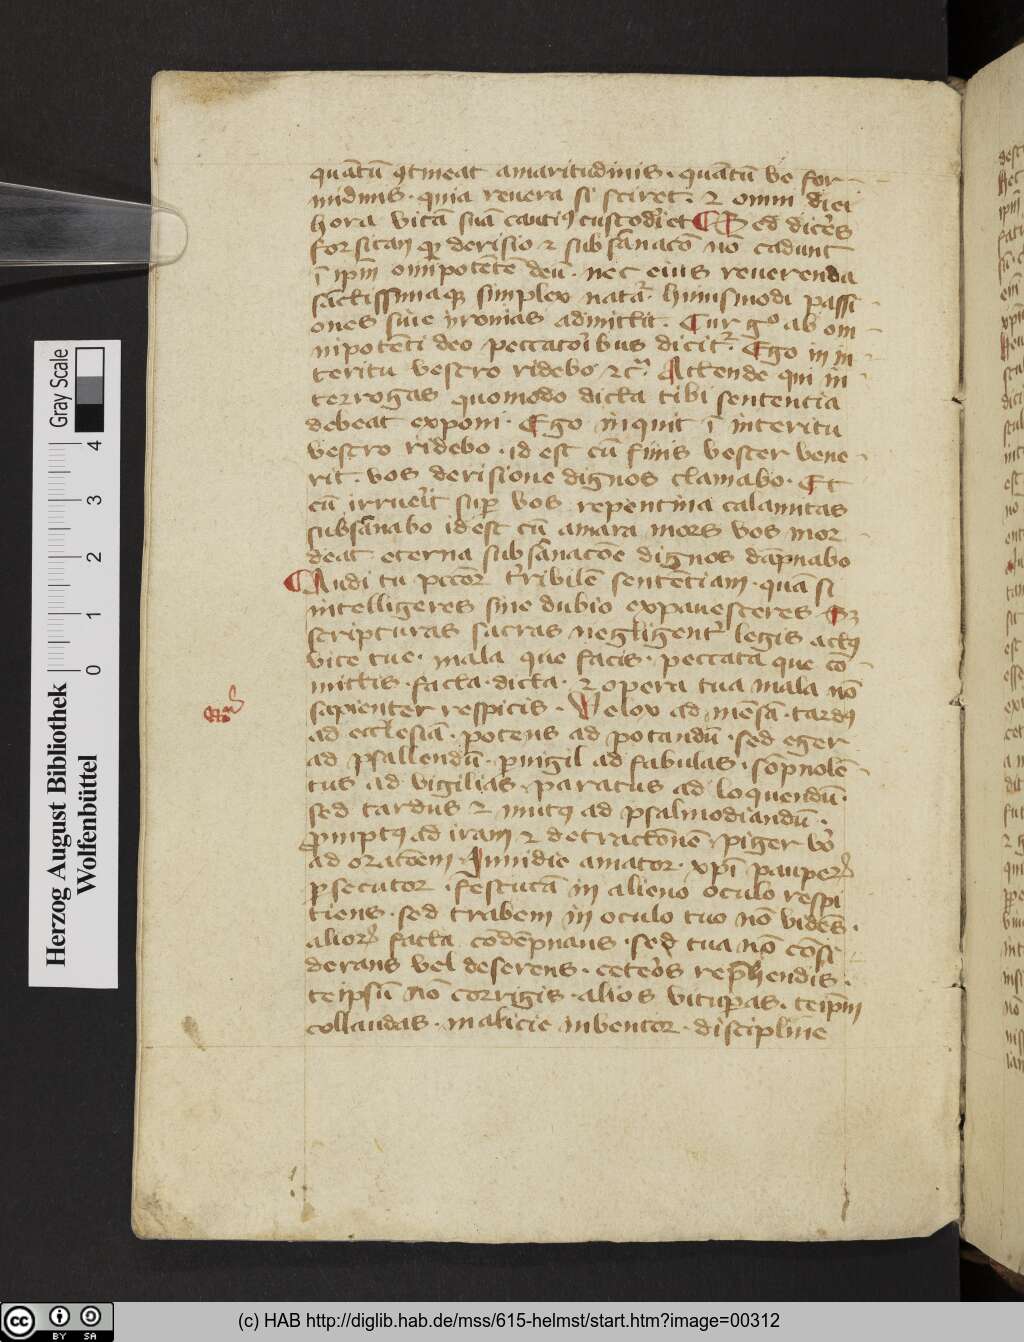 quātū ꝯtineat amaritudinis · quātū ve for
midinis · quia revera si sciret · ⁊ omni diei
hora vitā suā cautiꝰ custodiet Sed dicēs
forsitan ꝙ derisio ⁊ subsānacō nō cadunt
ī ip̄m om̄ipotētē deū · nec eius reverenda
sāctissimaqꝫ simplex natā · huiusmodi passi
ones sive yronias admittit · Cur gͦ ab om
nipotēti deo peccatoibus dicit᷑ · Ego in in
teritu vestro ridebo ⁊cᷓ Attende qui in
terrogas quomodo dicta tibi sententia
debeat exponi · Ego inquit ī interitu
vestro ridebo · id est cū finis vester vene
rit · vos derisione dignos clamabo · Et
cū irruerīt suꝑ vos repentina calamitas
subsānabo id est cū amara mors vos mor
deat eterna subsānacōe dignos dāpnabo
Audi tu pctōr tͬribilē sentētiam · quā si
intelligeres sine dubio expavesceres · Sꝫ
scripturas sacras negligent᷑ legis actꝰ
vite tue · mala que facis · peccata que cō
mittis · facta · dicta · ⁊ opera tua mala nō
sapienter respicis · Velox ad mēsā · tardꝰ
ad ecclesiā · potens ad potandū · sed eger
ad psallendū · ꝑvigil ad fabulas · sōpnolē
tus ad vigilias · paratus ad loquendū ·
sed tardus ⁊ mutꝰ ad psalmodiandū ·
ꝓmptꝰ ad iram ⁊ detractōnē · piger vͦ
ad oratōem · Invidie amator · xp̄i pauperꝝ
ꝑsecutor · festucā in alieno oculo respi
tiens · sed trabem in oculo tuo nō vidēs ·
aliorꝝ facta cōdēpnans · sed tua nō cōsi
derans vel deserens · ceteros rep̄hendis ·
teipsū nō corrigis · alios vituꝑas · teip̄m
collaudas · malicie inventor · discipline
Herzog August Bibliothek
Wolfenbüttel
Gray Scale
0 1 2 3 4
cc BY SA
(c) HAB http://diglib.hab.de/mss/615-helmst/start.htm?image=00312